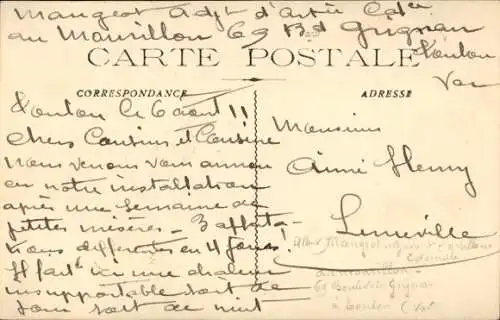 Mangeot Adjt d'Artie Cole
au Mourillon 69 Bd Grignan
Toulon
Var
CARTE POSTALE
CORRESPONDANCE
ADRESSE
Toulon le 6 aout 11
Chers Cousins et Cousine
nous venons vous annon
en notre installation
après une Semaine de
petites misères - 3 affecta-
tions differentes en 4 jours!
Il fait ici une chaleur
insupportable soit de
jour soit de nuit
Monsieur
Aimé Henry
Luneville
Albert Mangeot adjudant
coloniale
au Mourillon -
69 Boulevard Grignan
à Toulon (Var